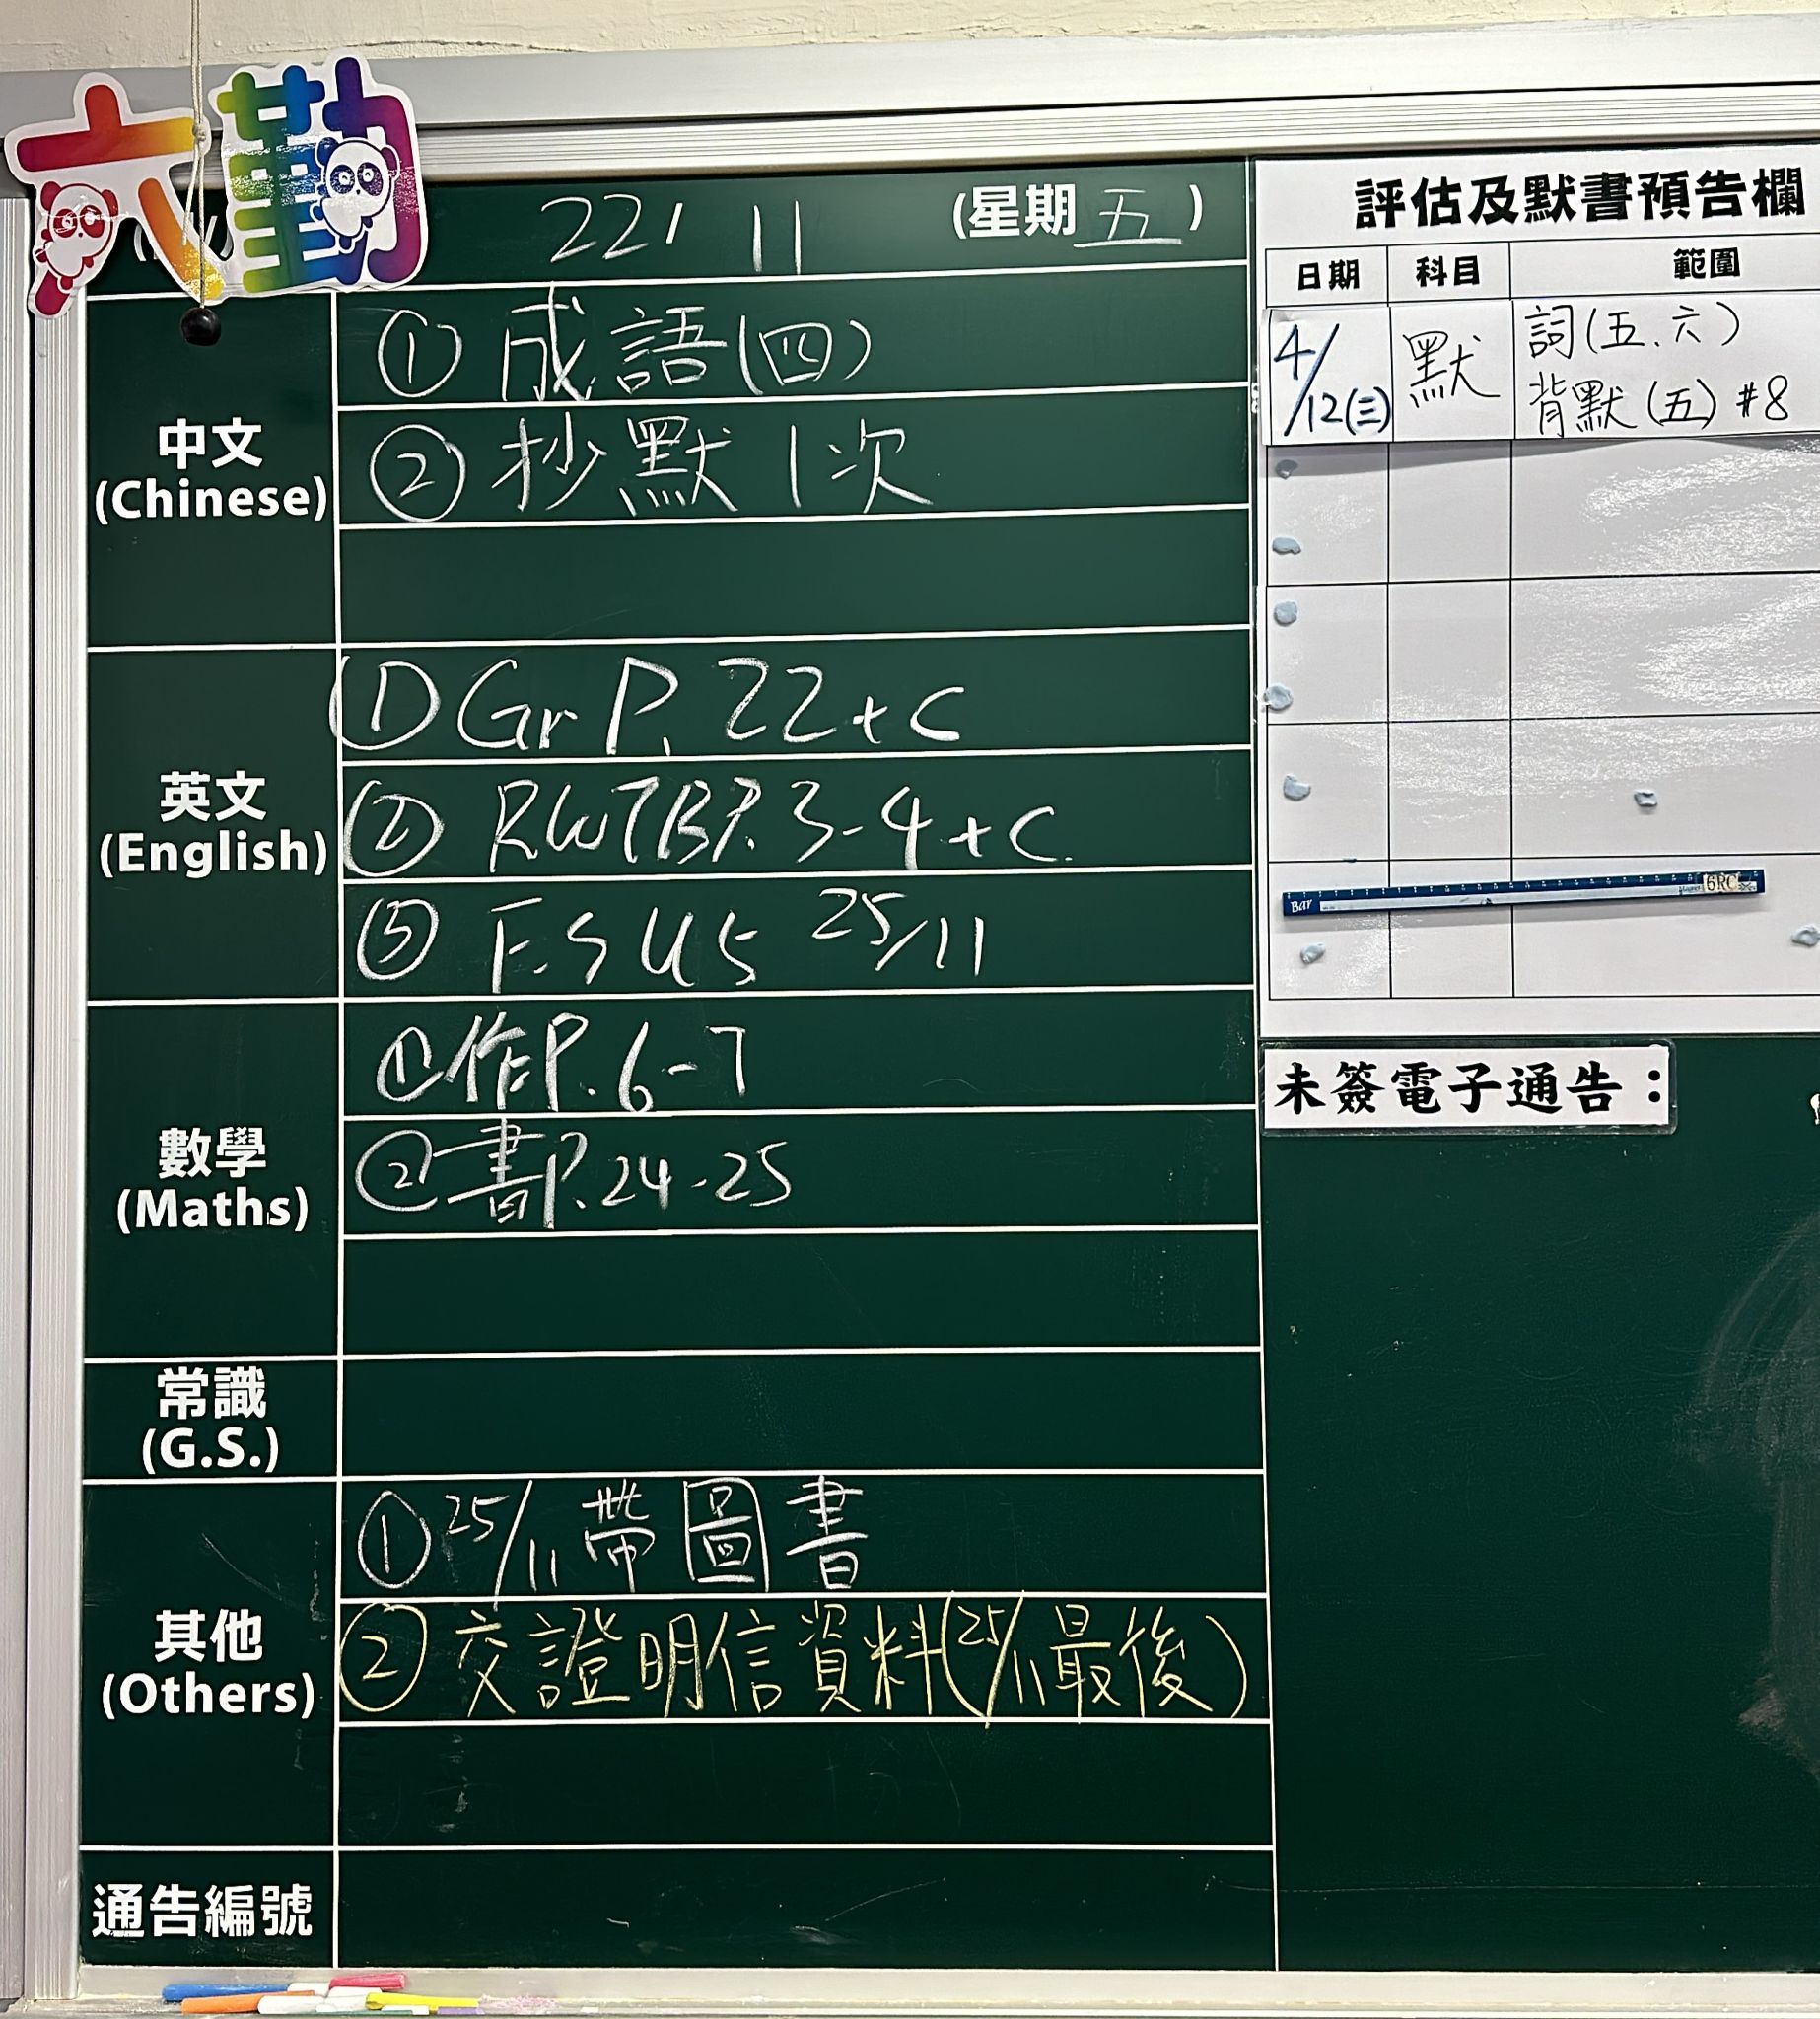 六勤
22/ 11 (星期五)
中文
(Chinese)
① 成語(四)
② 抄默1次
英文
(English)
① Gr P. 22+c
② RWTB P. 3-4 + c.
③ E.S U5 25/11
數學
(Maths)
① 作P. 6-7
② 書P. 24-25
常識
(G.S.)
其他
(Others)
① 25/11 帶圖書
② 交證明信資料(25/11最後)
通告編號
評估及默書預告欄
日期 科目 範圍
4/12(三) 默 詞(五、六)
背默(五) #8
Bar 6RC
未簽電子通告：